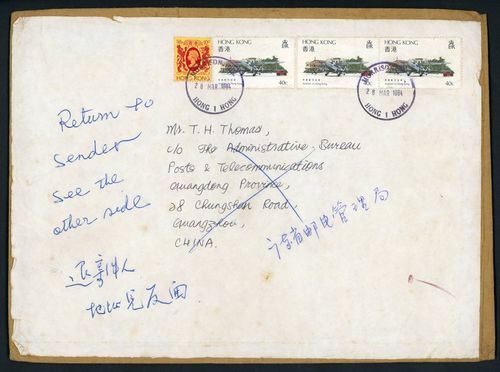 HONG KONG
HONG KONG
香港
40c
HONG KONG
香港
40c
HONG KONG
香港
40c
28 MAR 1984
HONG KONG
28 MAR 1984
HONG KONG
Return to
sender
see the
other side
退寄件人
地址見反面
Mr. T. H. Thomas,
c/o The Administrative Bureau
Posts & Telecommunications
Guangdong Province,
28 Chungshan Road,
Guangzhou,
CHINA.
广东省邮电管理局